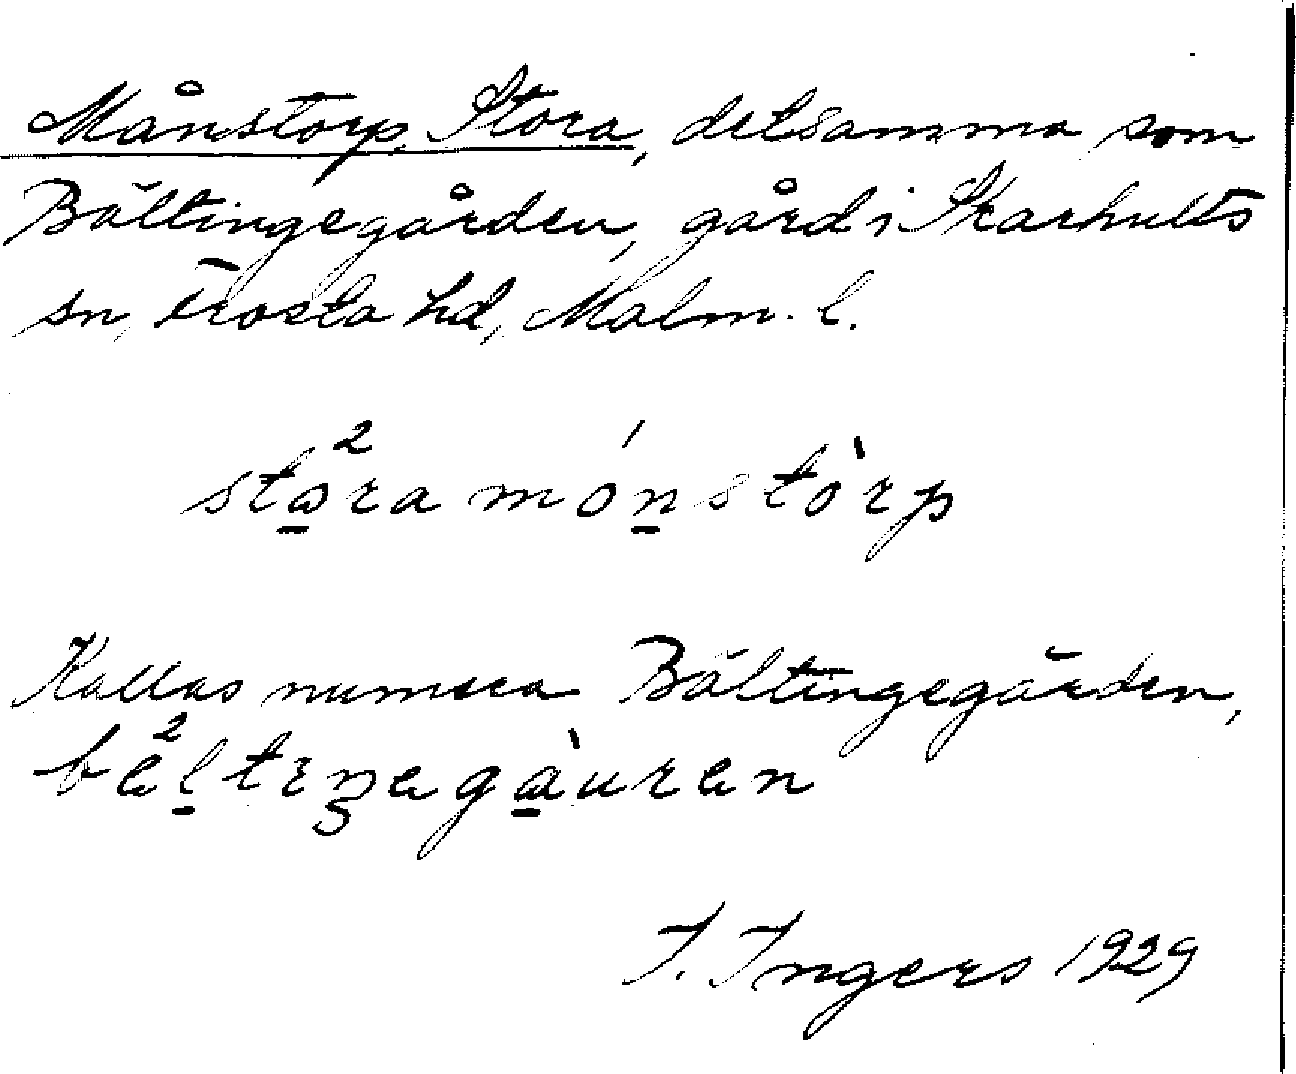 Månstorp, Stora, detsamma som
Bältingegården, gård i Skarhults
sn, Frosta hd, Malm. l.
stω̲²ra món̲stòrp
Kallas numera Bältingegården,
bä²l̲tıŋegàuren
I. Ingers 1929